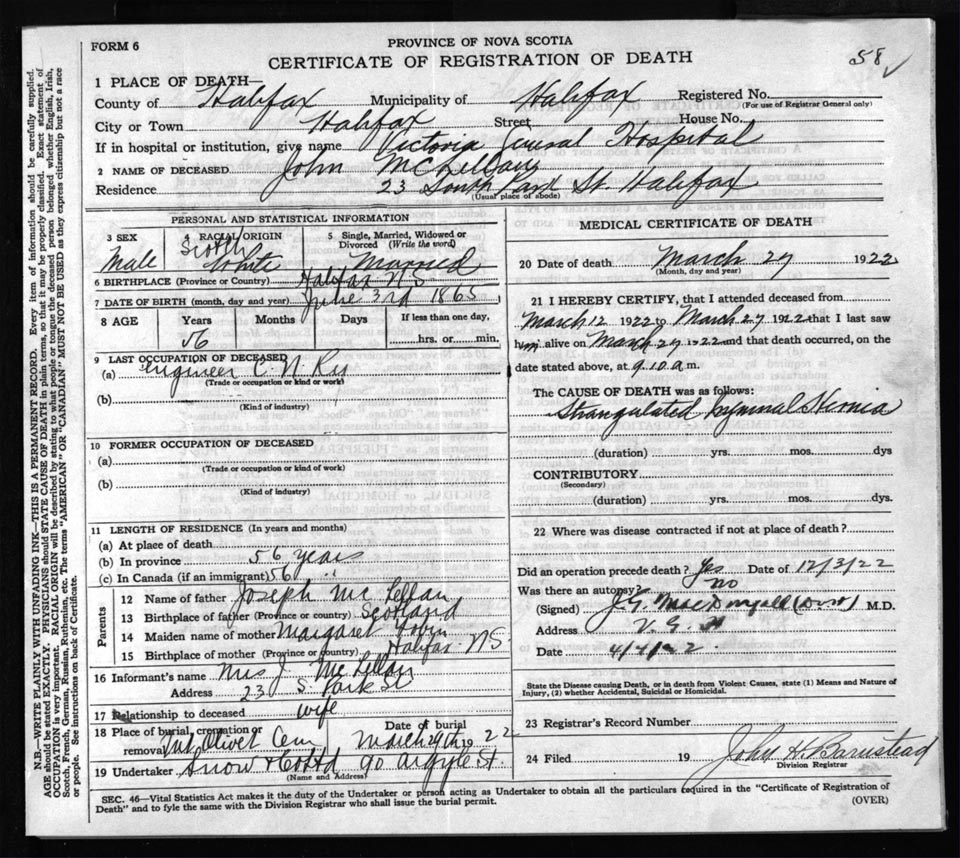 FORM 6
PROVINCE OF NOVA SCOTIA
CERTIFICATE OF REGISTRATION OF DEATH
58 ✓
1 PLACE OF DEATH—
County of Halifax Municipality of Halifax Registered No.
(For use of Registrar General only)
City or Town Halifax Street House No.
If in hospital or institution, give name Victoria General Hospital
2 NAME OF DECEASED John McLellan
Residence 23 South Park St. Halifax
(Usual place of abode)
PERSONAL AND STATISTICAL INFORMATION
3 SEX Male
4 RACIAL ORIGIN Scotch White
5 Single, Married, Widowed or Divorced (Write the word) Married
6 BIRTHPLACE (Province or Country) Halifax N S
7 DATE OF BIRTH (month, day and year) June 3rd 1865
8 AGE Years Months Days If less than one day,
56 hrs. or min.
9 LAST OCCUPATION OF DECEASED
(a) Engineer C. N. Ry
(Trade or occupation or kind or work)
(b)
(Kind of industry)
10 FORMER OCCUPATION OF DECEASED
(a)
(Trade or occupation or kind of work)
(b)
(Kind of industry)
11 LENGTH OF RESIDENCE (In years and months)
(a) At place of death
(b) In province 56 years
(c) In Canada (if an immigrant) 56 "
Parents
12 Name of father Joseph McLellan
13 Birthplace of father (Province or country) Scotland
14 Maiden name of mother Margaret
15 Birthplace of mother (Province or country) Halifax NS
16 Informant's name Mrs J. McLellan
Address 23 S. Park St
17 Relationship to deceased wife
18 Place of burial, cremation or removal Mt Olivet Cem Date of burial March 29th 1922
19 Undertaker Snow & Co Ltd 90 Argyle St.
(Name and Address)
MEDICAL CERTIFICATE OF DEATH
20 Date of death March 27 1922
(Month, day and year)
21 I HEREBY CERTIFY, that I attended deceased from
March 12 1922 to March 27 1922 that I last saw
him alive on March 27 1922 and that death occurred, on the
date stated above, at 9.10 a m.
The CAUSE OF DEATH was as follows:
Strangulated Hernia
(duration) yrs. mos. dys
CONTRIBUTORY
(Secondary)
(duration) yrs. mos. dys.
22 Where was disease contracted if not at place of death?
Did an operation precede death? Yes Date of 12/3/22
Was there an autopsy? no
(Signed) MacDougall M.D.
Address V. G. H
Date 4/4/22
State the Disease causing Death, or in death from Violent Causes, state (1) Means and Nature of
Injury, (2) whether Accidental, Suicidal or Homicidal.
23 Registrar's Record Number
24 Filed 19 John H. Barnstead
Division Registrar
SEC. 46—Vital Statistics Act makes it the duty of the Undertaker or person acting as Undertaker to obtain all the particulars required in the "Certificate of Registration of
Death" and to fyle the same with the Division Registrar who shall issue the burial permit.
(OVER)
N.B.—WRITE PLAINLY WITH UNFADING INK—THIS IS A PERMANENT RECORD. Every item of information should be carefully supplied.
AGE should be stated EXACTLY. PHYSICIANS should STATE CAUSE OF DEATH in plain terms, so that it may be properly classified. Exact statement of
OCCUPATION is very important. RACIAL ORIGIN will be described by stating to what people or tongue the deceased person belonged whether English, Irish,
Scotch, French, German, Russian, Ruthenian, etc. The terms "AMERICAN" OR "CANADIAN" MUST NOT BE USED as they express citizenship but not a race
or people. See instructions on back of Certificate.